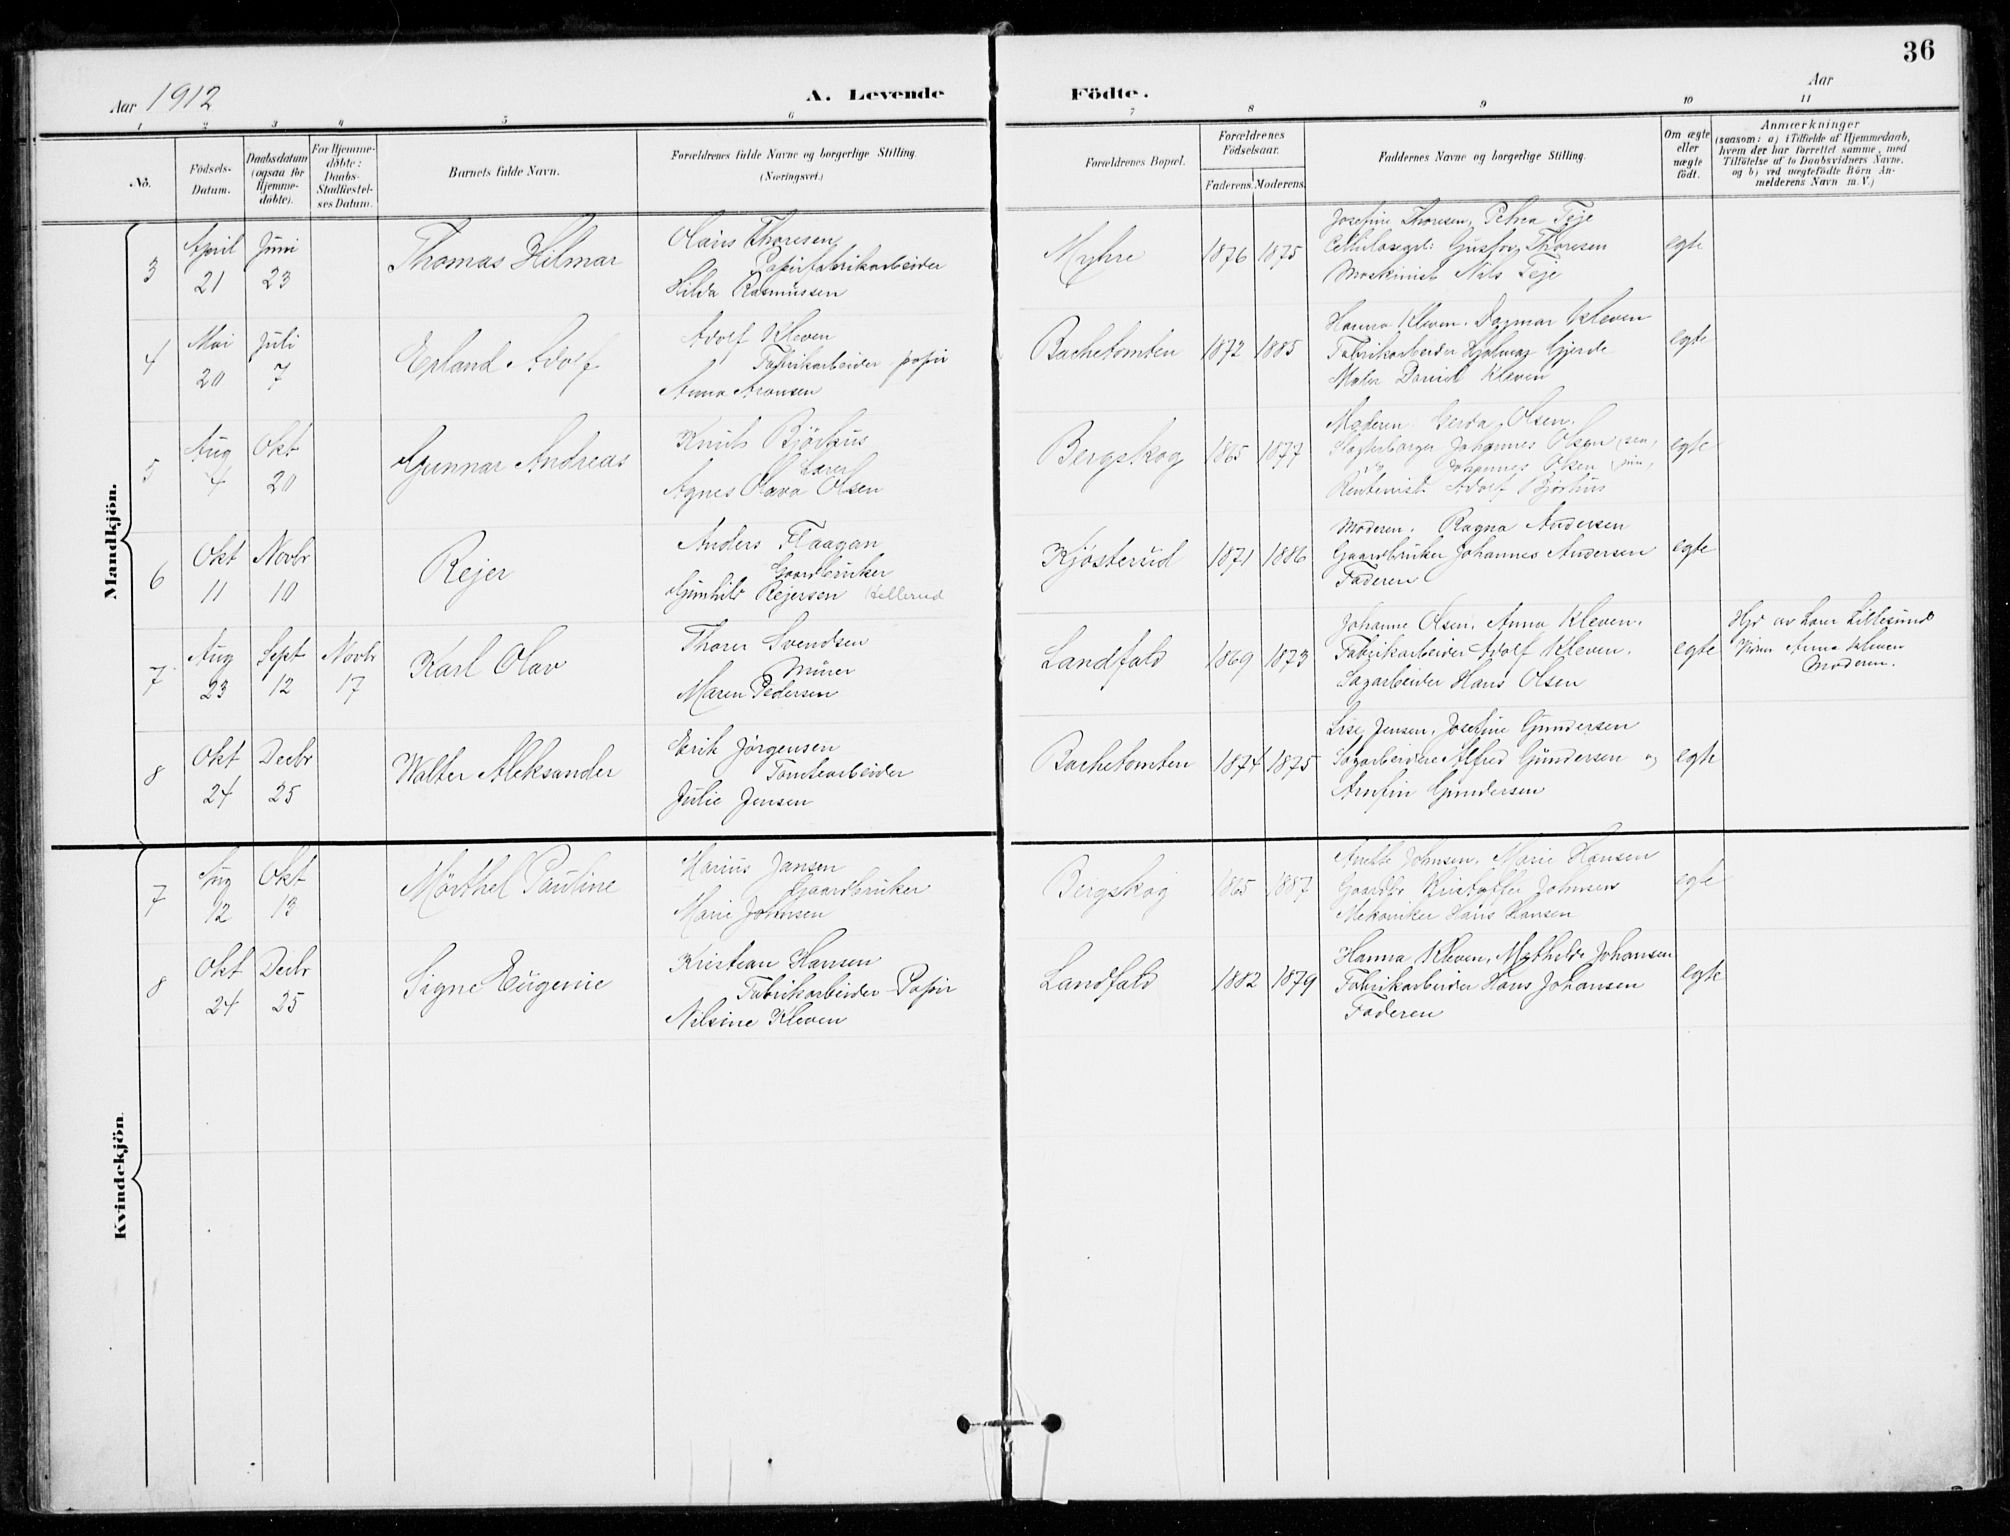 36
Aar 1912
A. Levende Födte.
Aar
1 2 3 4 5 6 7 8 9 10 11
No.
Födsels-Datum.
Daabsdatum (ogsaa for Hjemme-döbte).
For Hjemme-döbte: Daabs-Stadfæstel-ses Datum.
Barnets fulde Navn.
Forældrenes fulde Navne og borgerlige Stilling.
(Næringsvei.)
Forældrenes Bopæl.
Forældrenes Födselsaar.
Faderens. Moderens.
Faddernes Navne og borgerlige Stilling.
Om ægte eller uægte födt.
Anmærkninger
(saasom: a) i Tilfælde af Hjemmedaab,
hvem der har forrettet samme, med
Tilföielse af to Daabsvidners Navne.
og b) ved uægtefödte Börn An-
melderens Navn m. V.)
Mandkjön.
3 April 21 Juni 23
Thomas Hilmar
Olaus Thoresen,
Papirfabrikarbeider
Hilda Rasmussen
Myhre 1876 1875
Josefine Thoresen, Petra Teje
Gustav Thoresen
Maskinist Nils Teje
egte
4 Mai 20 Juli 7
Erland Adolf
Adolf Kleven
Fabrikarbeider papir
Anna Aronsen
Bachetomten 1872 1885
Hanna Kleven. Dagmar Kleven
Fabrikarbeider Hjalmar Gjerde
Maler Daniel Kleven
egte
5 Aug 4 Okt 20
Gunnar Andreas
Knut Bjørhus
Lærer
Agnes Olava Olsen
Bergskog 1865 1877
Moderen Gerda Olsen.
Johannes Olsen sen,
Johannes Olsen jun,
Adolf Bjørhus
egte
6 Okt 11 Novbr 10
Rejer
Anders Flaagan
Gaardbruker
Gunhild Rejersen Hellerud
Kjøsterud 1871 1886
Moderen. Ragna Andersen
Gaardbruker Johannes Andersen
Faderen
egte
7 Aug 23 Sept 12 Novbr 17
Karl Olav
Thorer Svendsen
Murer
Maren Pedersen
Landfald 1869 1873
Johanne Olsen. Anna Kleven.
Fabrikarbeider Adolf Kleven.
Sagarbeider Hans Olsen
egte
Hjd av Lars Lillesund
Vidner Anna Kleven
Moderen.
8 Okt 24 Decbr 25
Walter Aleksander
Erik Jørgensen
Tomtearbeider
Julie Jensen
Bachetomten 1874 1875
Lise Jensen, Josefine Gundersen
Sagarbeidere Alfred Gundersen og
Arnfin Gundersen
egte
Kvindekjön.
7 Aug 12 Okt 13
Mørthel Pauline
Marius Jansen
Gaardbruker
Marie Johnsen
Bergskog 1865 1887
Anette Johnsen, Marie Hansen
Gaardbr Kristoffer Johnsen
Mekaniker Hans Hansen
egte
8 Okt 24 Decbr 25
Signe Eugenie
Kristian Hansen
Fabrikarbeider Papir
Nilsine Kleven
Landfald 1882 1879
Hanna Kleven, Mathilde Johansen
Fabrikarbeider Hans Johansen
Faderen
egte